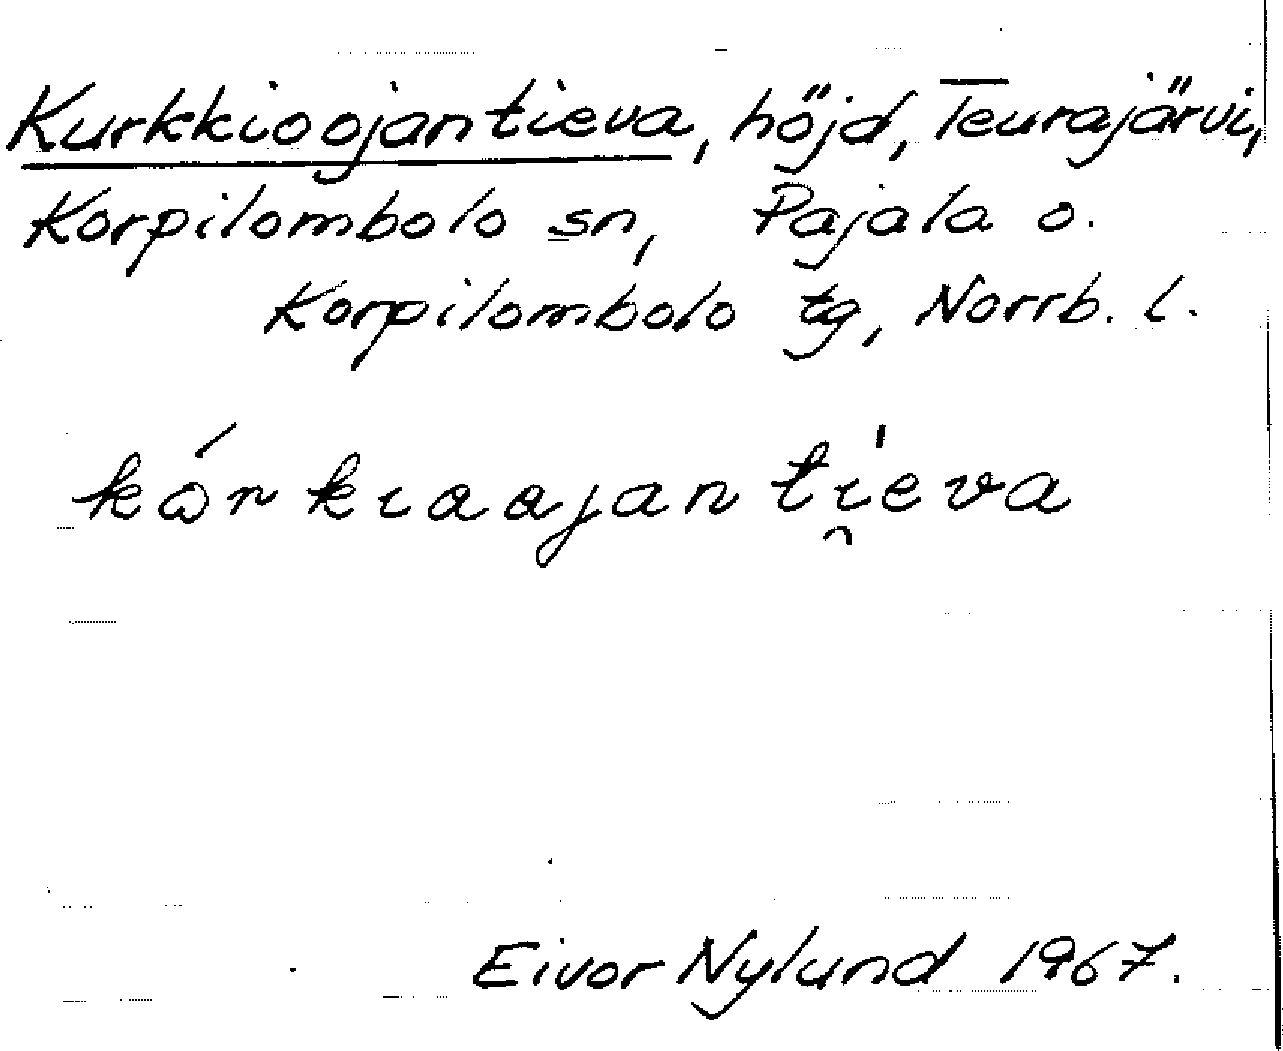 Kurkkioojantieva, höjd, Teurajärvi,
Korpilombolo sn, Pajala o.
Korpilombolo tg, Norrb. l.
kórkıaajan tı̯́eva
Eivor Nylund 1967.